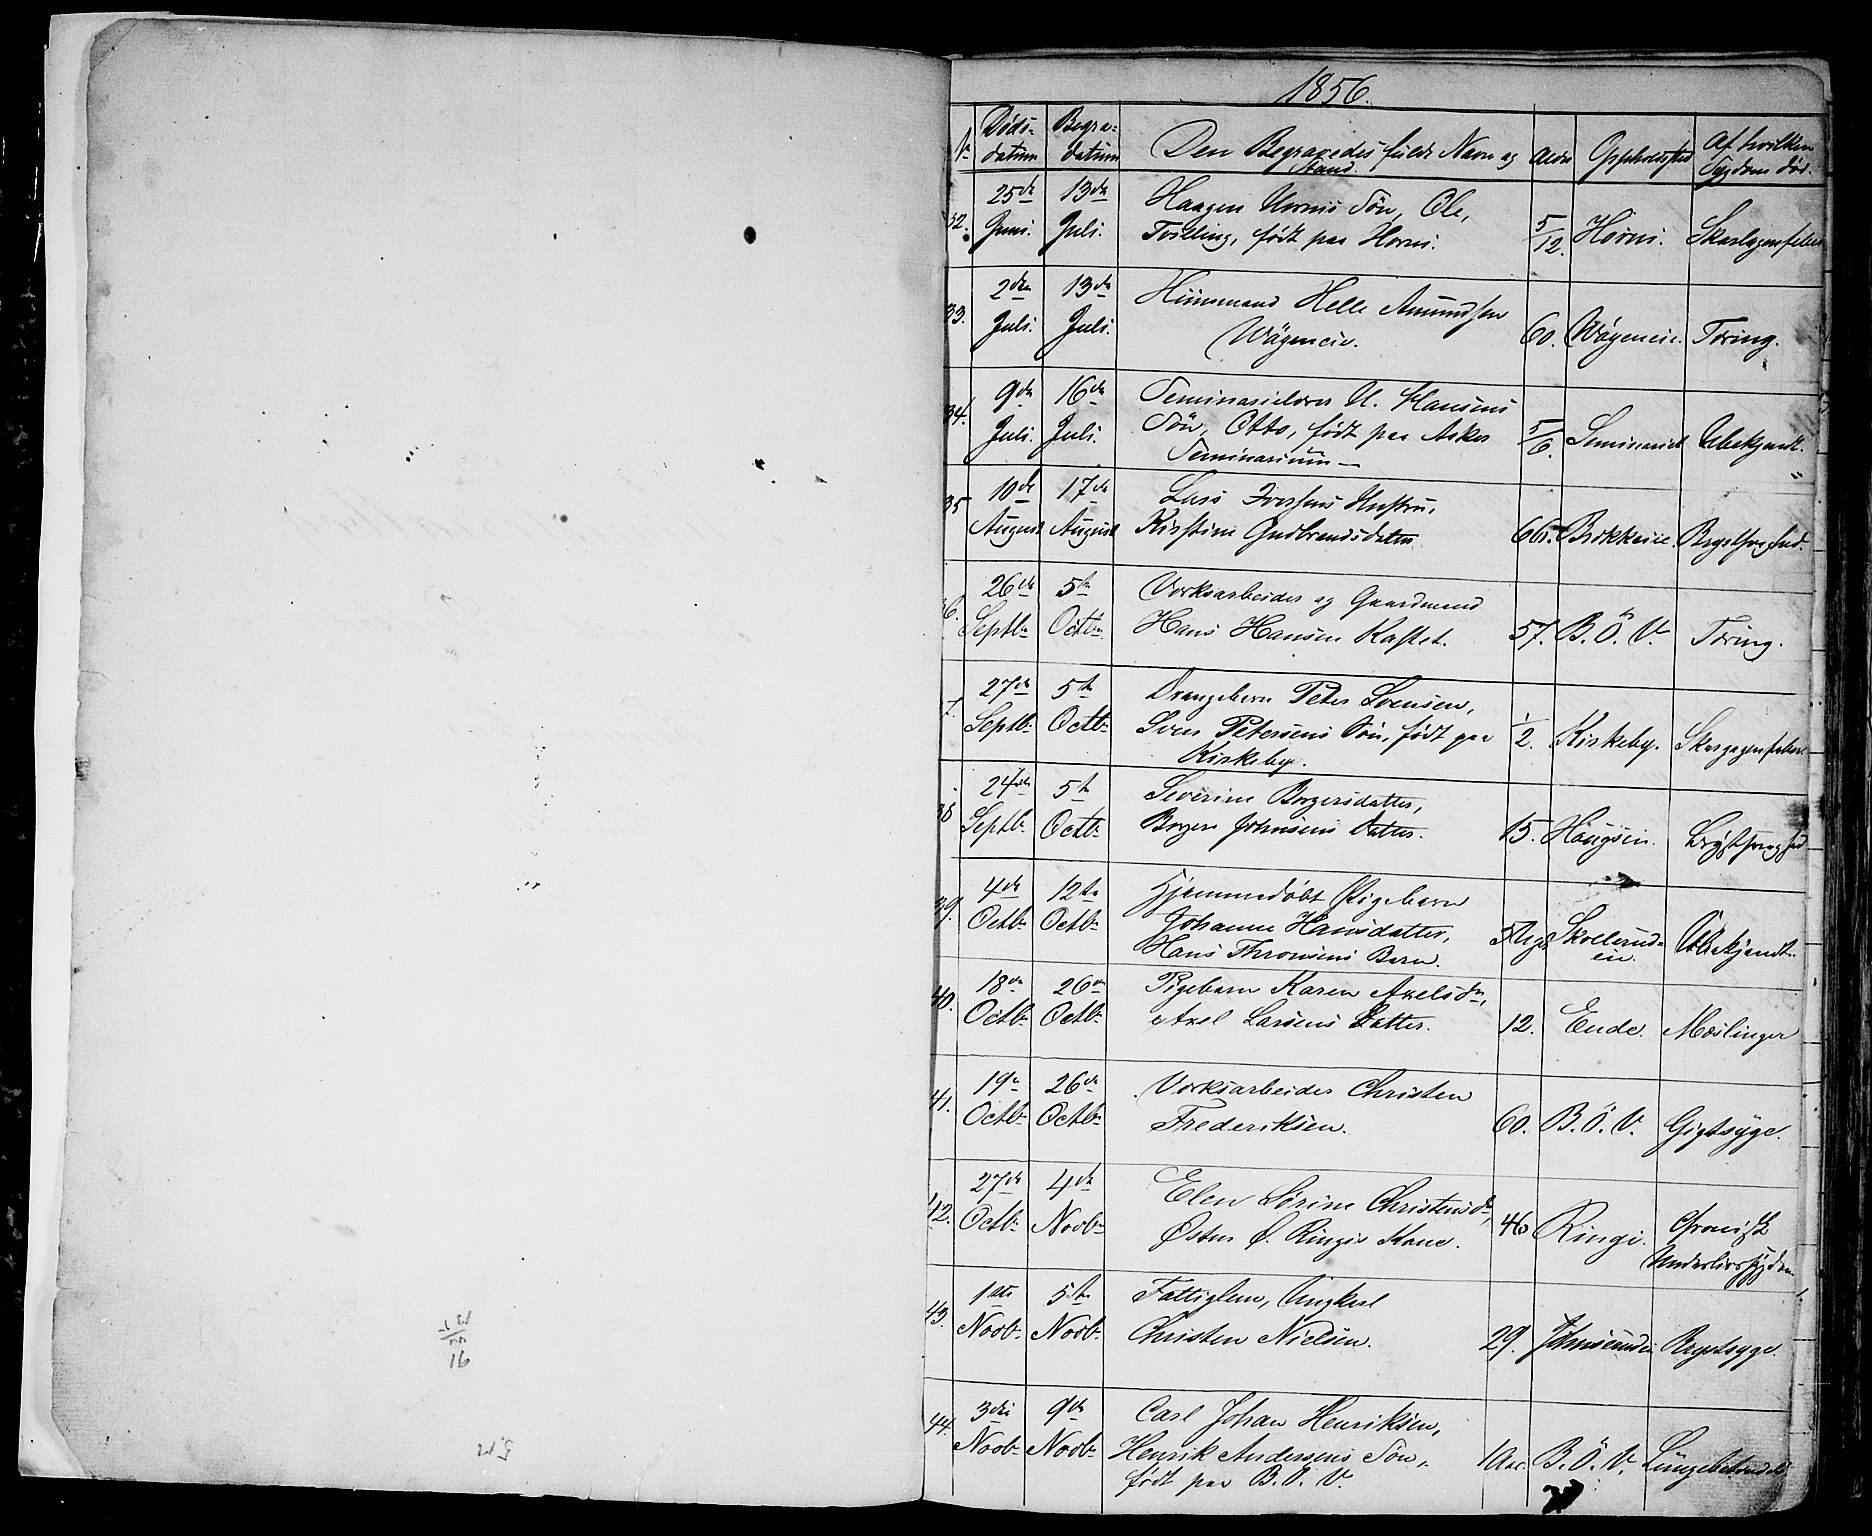 1856.
No Døds- datum Begra- datum Den Begravedes fulde Navn og Stand. Alder Opholdssted Af hvilken Sygdom død.
32. 25de Juni. 13de Juli. Haagen Hornis Søn, Ole,
Tvilling, født paa Horni. 5/12. Horni. Skarlagensfeber
33. 2den Juli. 13de Juli. Huusmand Helle Amundsen
Wøyeneie. 60. Wøyeneie. Tæring.
34. 9de Juli. 16de Juli. Seminarielærer U. Hansens
Søn, Otto, født paa Asker
Seminarium— 5/6. Seminariet Ubekjendt.
35 10de August 17de August Lars Iversens Hustru,
Kirstine Gudbrandsdatter 66. Brækkeeie. Brystsvaghed.
36. 26de Septbr 5te Octbr Værksarbeider og Gaardmand
Hans Hansen Kastet. 57. B. Ö. V. Tæring.
37. 27de Septbr 5te Octbr Drengebarn Peter Svensen,
Sven Petersens Søn, født paa
Kirkeby. 1/2. Kirkeby. Skarlagensfeber
38 24de Septbr 5te Octbr Severine Borgersdatter,
Borger Johnsens Datter. 15. Haugen. Brystsvaghed
39. 4de Octbr 12te Octbr Hjemmedøbt Pigebarn
Johanne Hansdatter,
Hans Thronsens Barn. 5 Uger Skollerud-
eie. Ubekjendt.
40. 18de Octbr 26de Octbr Pigebarn Karen Axelsdr,
Axel Larsens Datter. 12. Ende. Mæslinger
41. 19de Octbr 26de Octbr Værksarbeider Christen
Frederiksen. 60. B. Ö. V. Gigtsyge.
42. 27de Octbr 4de Novbr Elen Sørine Christensdr,
Østen Ø. Ringis Kone. 46 Ringi. Chronisk
Underlivssygdom
43. 1ste Novbr 5te Novbr Fattiglem, Ungkarl
Christen Nielsen. 29. Johnsrudei Brystsyge.
44. 3die Novbr 9de Novbr Carl Johan Henriksen,
Henrik Andersens Søn,
født paa B. Ö. V. 1 Aar. B. Ö. V. Lungebetændelse